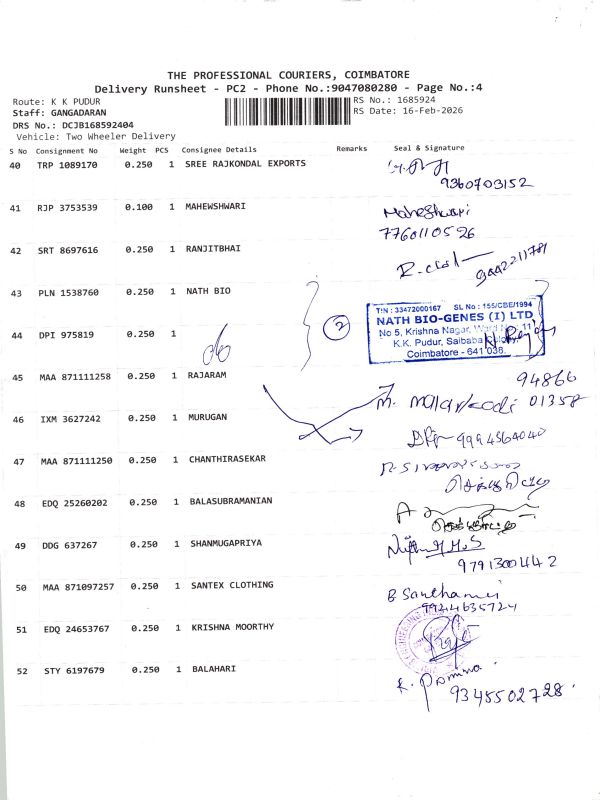 THE PROFESSIONAL COURIERS, COIMBATORE
Delivery Runsheet - PC2 - Phone No.:9047080280 - Page No.:4
Route: K K PUDUR
RS No.: 1685924
Staff: GANGADARAN
RS Date: 16-Feb-2026
DRS No.: DCJB168592404
Vehicle: Two Wheeler Delivery
S No Consignment No Weight PCS Consignee Details Remarks Seal & Signature
40 TRP 1089170 0.250 1 SREE RAJKONDAL EXPORTS
9360703152
41 RJP 3753539 0.100 1 MAHEWSHWARI Maheshwari
7760110526
42 SRT 8697616 0.250 1 RANJITBHAI
9442211781
43 PLN 1538760 0.250 1 NATH BIO
2
TIN : 33472000167 SL No : 155/CBE/1994
NATH BIO-GENES (I) LTD
No 5, Krishna Nagar, Ward No: 11
K.K. Pudur, Saibaba Colony
Coimbatore - 641 036.
44 DPI 975819 0.250 1
45 MAA 871111258 0.250 1 RAJARAM
94866
M. Malarkodi 01358
46 IXM 3627242 0.250 1 MURUGAN
9994564040
47 MAA 871111250 0.250 1 CHANTHIRASEKAR
48 EDQ 25260202 0.250 1 BALASUBRAMANIAN
49 DDG 637267 0.250 1 SHANMUGAPRIYA
9791300442
50 MAA 871097257 0.250 1 SANTEX CLOTHING
9944635724
51 EDQ 24653767 0.250 1 KRISHNA MOORTHY
52 STY 6197679 0.250 1 BALAHARI
9345502728